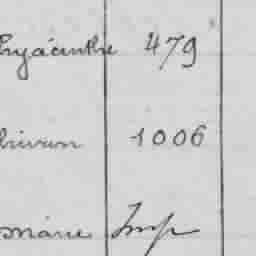 Hyacinthe 479
1006
marie Imp